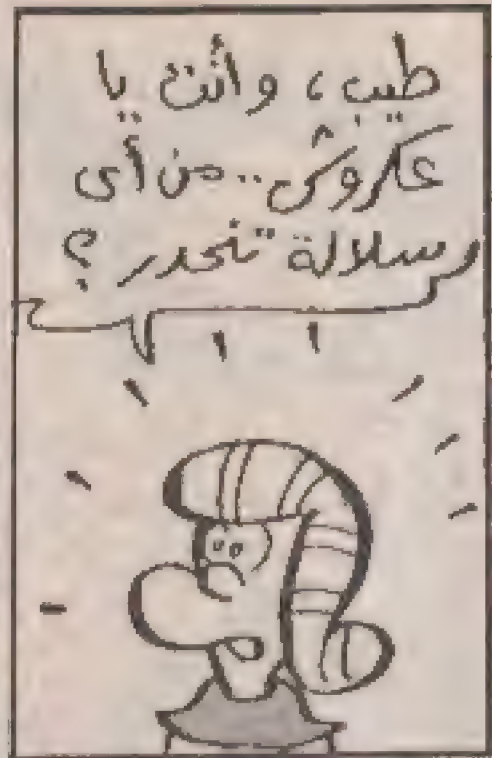 طيب، وأنت يا
عكروش.. من أى
سلالة تنحدر؟